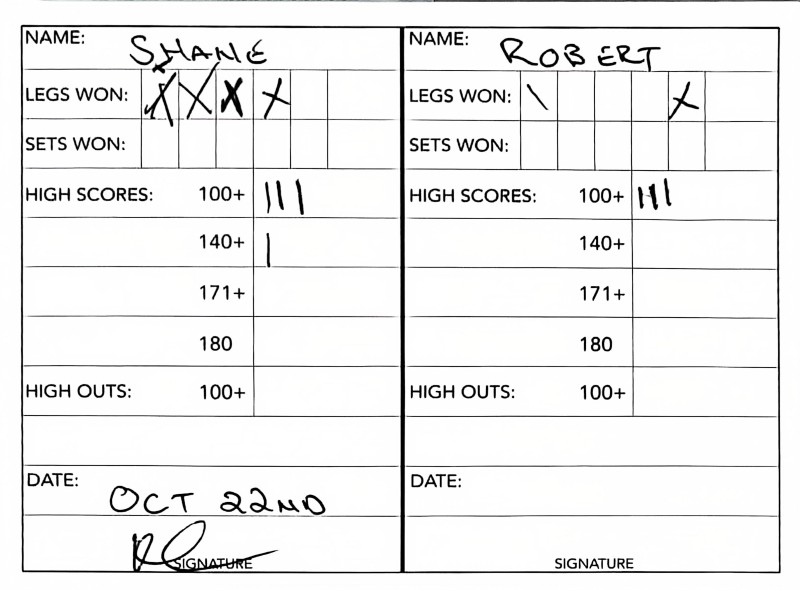 NAME: SHANE
LEGS WON: X X X X
SETS WON:
HIGH SCORES: 100+ |||
140+ |
171+
180
HIGH OUTS: 100+
DATE: OCT 22ND
SIGNATURE
NAME: ROBERT
LEGS WON: \ X
SETS WON:
HIGH SCORES: 100+ |||
140+
171+
180
HIGH OUTS: 100+
DATE:
SIGNATURE